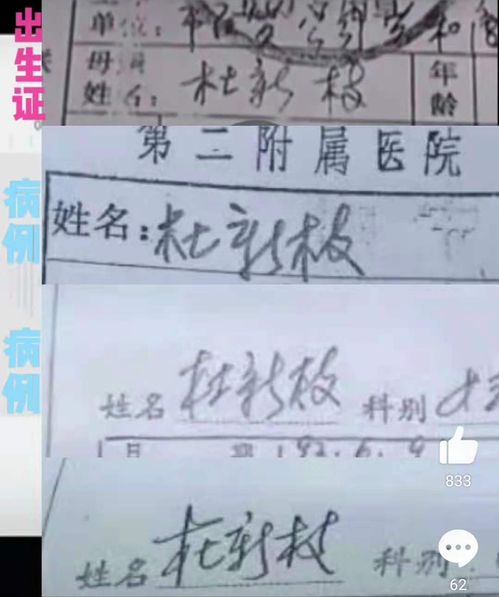 出生证
单位:
母亲
姓名:杜新枝
年龄
第二附属医院
姓名:杜新枝
病例
姓名 杜新枝 科别
92.6.9
病例
833
姓名 杜新枝 科别
62